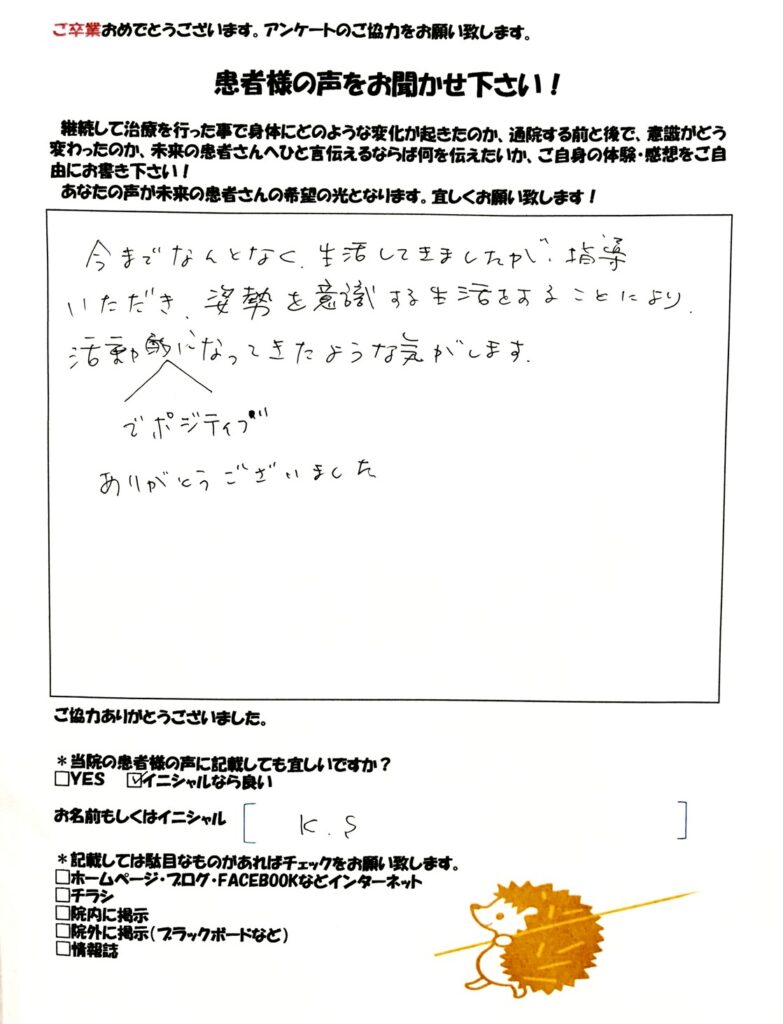 ご卒業おめでとうございます。アンケートのご協力をお願い致します。
患者様の声をお聞かせ下さい！
継続して治療を行った事で身体にどのような変化が起きたのか、通院する前と後で、意識がどう
変わったのか、未来の患者さんへひと言伝えるならば何を伝えたいか、ご自身の体験・感想をご自
由にお書き下さい！
あなたの声が未来の患者さんの希望の光となります。宜しくお願い致します！
今までなんとなく、生活してきましたが、指導
いただき、姿勢を意識する生活をすることにより、
活動的になってきたような気がします。
でポジティブ
ありがとうございました
ご協力ありがとうございました。
＊当院の患者様の声に記載しても宜しいですか？
□YES ☑イニシャルなら良い
お名前もしくはイニシャル [ K.S ]
＊記載しては駄目なものがあればチェックをお願い致します。
□ホームページ・ブログ・FACEBOOKなどインターネット
□チラシ
□院内に掲示
□院外に掲示（ブラックボードなど）
□情報誌